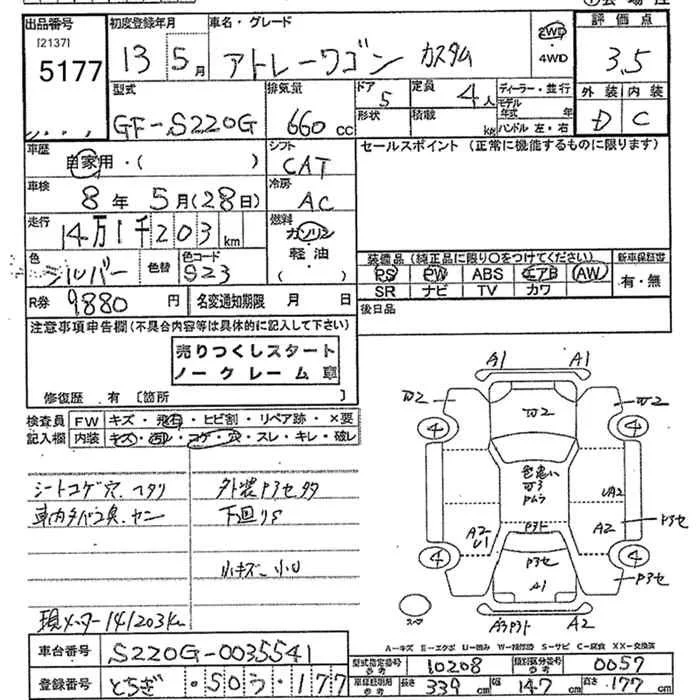 出品番号 初度登録年月 車名・グレード 評価点
[2137]
5177 13 5月 アトレーワゴン カスタム 2WD・4WD 3.5
型式 排気量 ドア 定員 ディーラー・並行 外装 内装
GF-S220G 660cc 5 4人 モデル年式 年 D C
形状 積載 kg ハンドル 左・右
車歴 自家用・( ) シフト CAT セールスポイント (正常に機能するものに限ります)
車検 8年5月(28日) 冷房 AC
走行 14万1千203km 燃料 ガソリン
軽油
・( )
色 シルバー 色替 色コード S23
装備品 (純正品に限り〇をつけてください) 新車保証書
PS PW ABS エアB AW 有・無
SR ナビ TV カワ
R券 9,880円 名変通知期限 月 日 後日品
注意事項申告欄(不具合内容等は具体的に記入して下さい)
売りつくしスタート
ノークレーム車
修復歴 有 [箇所 ]
検査員 FW キズ・飛石・ヒビ割・リペア跡・×要
記入欄 内装 キズ・汚れ・コゲ・穴・スレ・キレ・破レ
シートコゲ穴.ヘタリ
外装
下回りS
小キズ 小凹
現メーター141203km
A1 A1
W2 W2 W2
4 4
色悪い
UA2
A2 A2
U1
4 4
A1
A2
スペア
A-キズ E-エクボ U-凹み W-補修跡 S-サビ C-腐食 XX-交換済
車台番号 S220G-0035541
型式指定番号 参考 10208 類別区分番号 参考 0057
登録番号 とちぎ・50う・177
長さ 339cm 幅 147cm 高さ 177cm